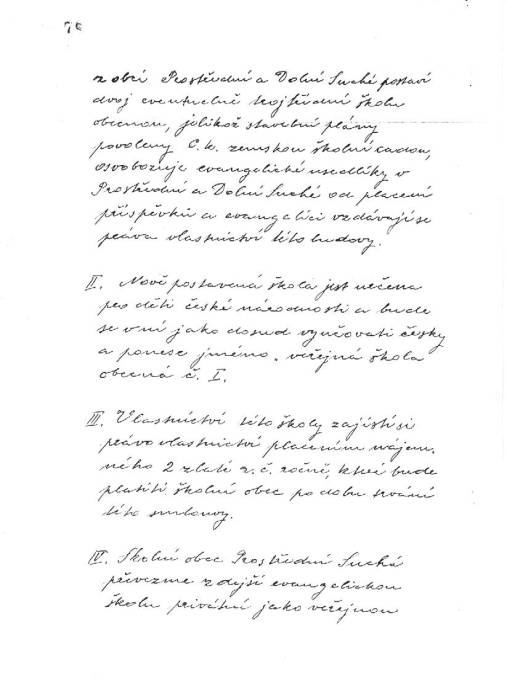 76
z obcí Prostřední a Dolní Suché postaví
dvoj eventuelně trojtřídní školu
obecnou, jelikož stavební plány
povoleny C. k. zemskou školní radou,
osvobozuje evangelické usedlíky v
Prostřední a Dolní Suché od placení
příspěvků a evangelíci vzdávají se
práva vlastnictví této budovy.
II. Nově postavená škola jest určena
pro děti české národnosti a bude
se v ní jako dosud vyučovati česky
a ponese jméno „veřejná škola
obecná č. I.
III. Vlastnictví této školy zajistí si
právo vlastnictví placením nájem,
ného 2 zlaté r. č. ročně, které bude
platiti školní obec po dobu trvání
této smlouvy.
IV. Školní obec Prostřední Suchá
převezme zdejší evangelickou
školu privátní jako veřejnou